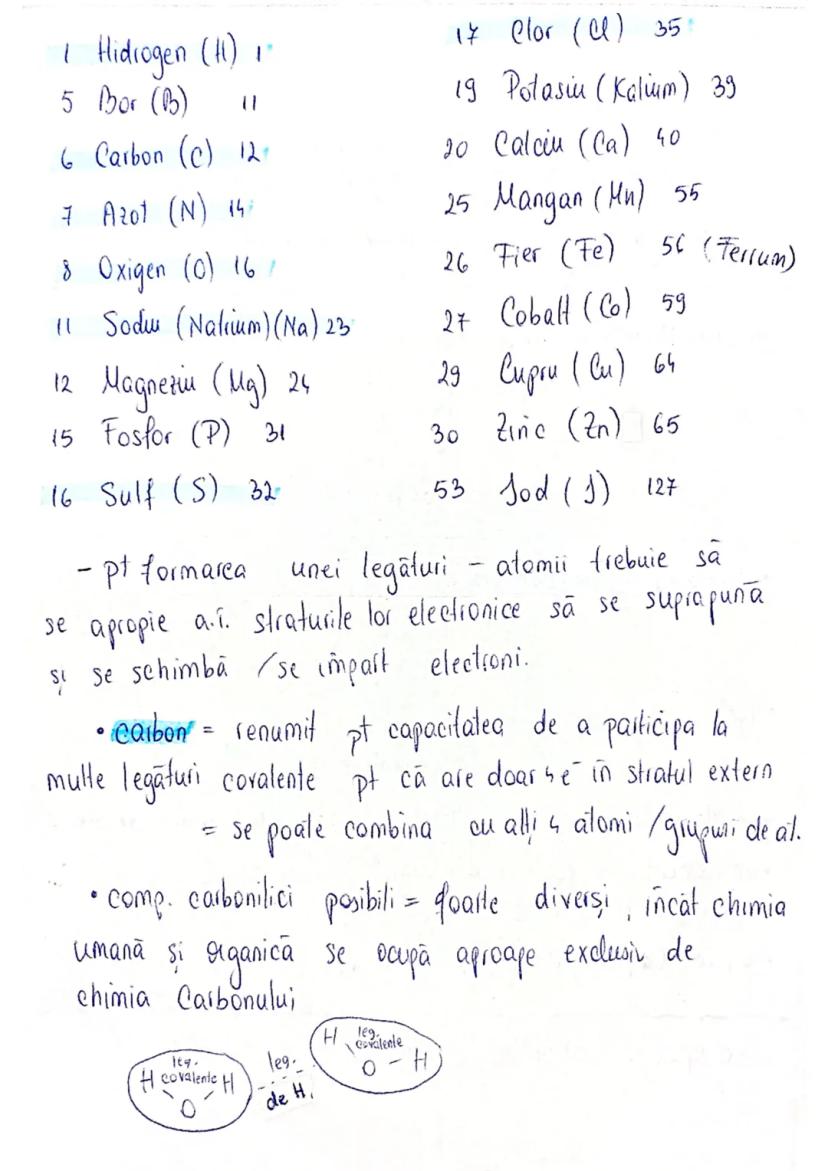 1 Hidrogen (H) 1
5 Bor (B) 11
6 Carbon (C) 12
7 Azot (N) 14
8 Oxigen (O) 16
11 Sodiu (Natrium)(Na) 23
12 Magneziu (Mg) 24
15 Fosfor (P) 31
16 Sulf (S) 32
17 Clor (Cl) 35
19 Potasiu (Kalium) 39
20 Calciu (Ca) 40
25 Mangan (Mn) 55
26 Fier (Fe) 56 (Ferrum)
27 Cobalt (Co) 59
29 Cupru (Cu) 64
30 Zinc (Zn) 65
53 Iod (I) 127
- pt formarea unei legături - atomii trebuie să
se apropie a.î. straturile lor electronice să se suprapună
și se schimbă /se împart electroni.
• carbon = renumit pt capacitatea de a participa la
multe legături covalente pt că are doar 4e⁻ în stratul extern
= se poate combina cu alți 4 atomi /grupuri de at.
• comp. carbonilici posibili = foarte diverși, încât chimia
umană și organică se ocupă aproape exclusiv de
chimia Carbonului
H leg. covalente H
O
leg.
de H.
H leg. covalente
O - H